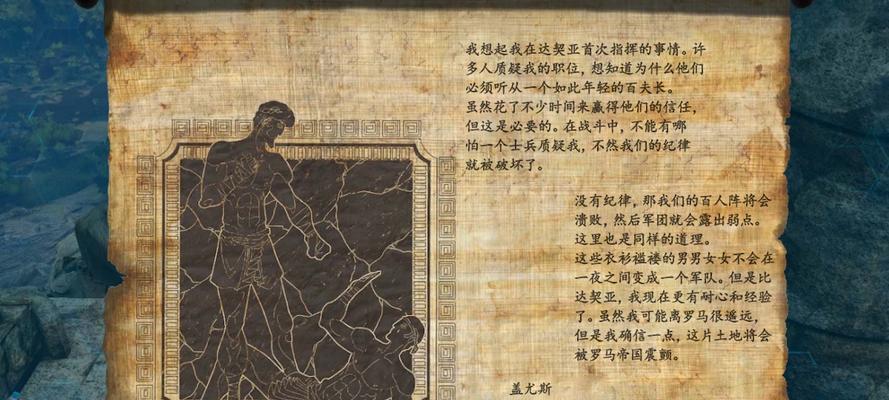 我想起我在达契亚首次指挥的事情。许
多人质疑我的职位，想知道为什么他们
必须听从一个如此年轻的百夫长。
虽然花了不少时间来赢得他们的信任，
但这是必要的。在战斗中，不能有哪
怕一个士兵质疑我，不然我们的纪律
就被破坏了。
没有纪律，那我们的百人阵将会
溃败，然后军团就会露出弱点。
这里也是同样的道理。
这些衣衫褴褛的男男女女不会在
一夜之间变成一个军队。但是比
达契亚，我现在更有耐心和经验
了。虽然我可能离罗马很遥远，
但是我确信一点，这片土地将会
被罗马帝国震颤。
盖尤斯